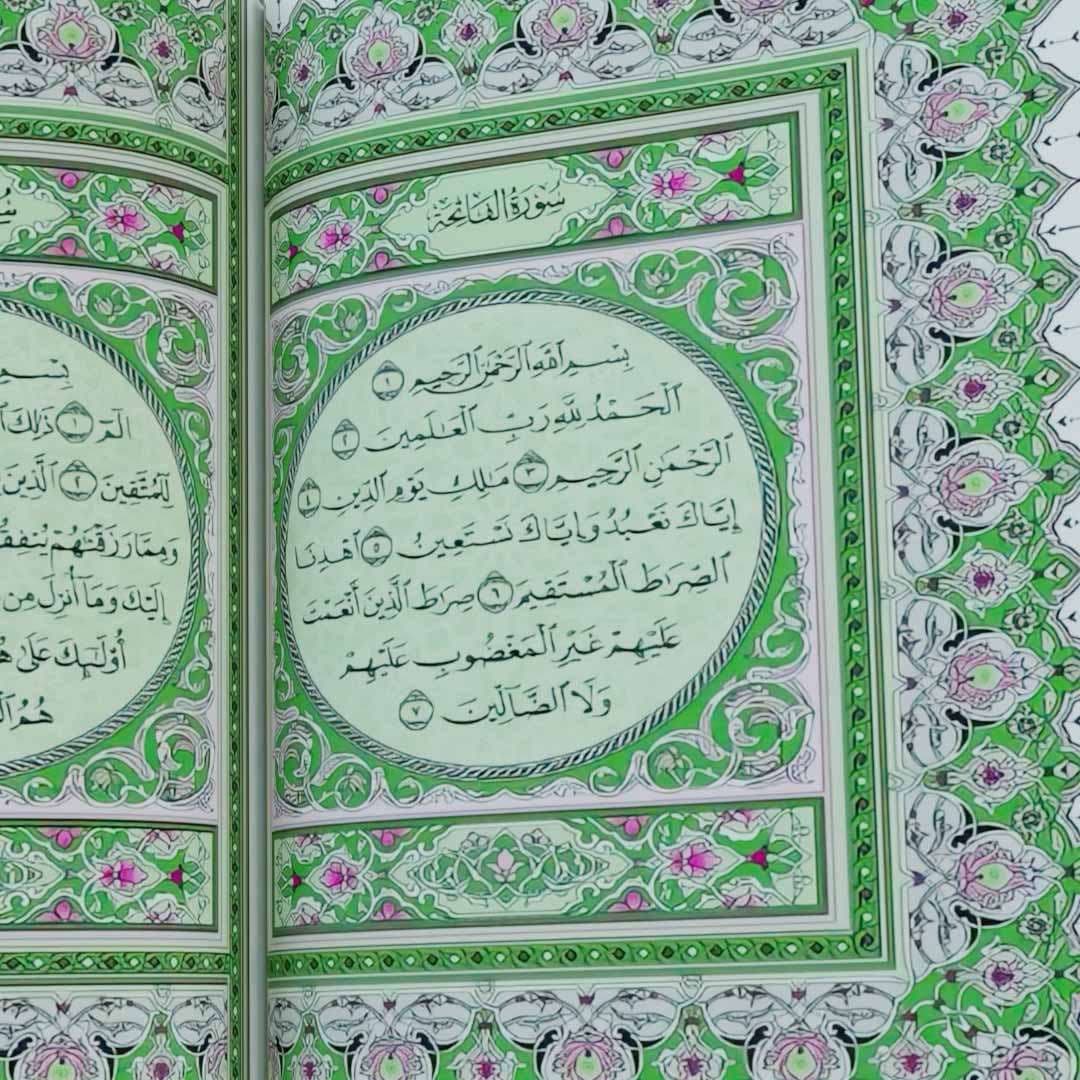 سُورَةُ الفَاتِحَةِ
بِسْمِ ٱللَّهِ ٱلرَّحْمَٰنِ ٱلرَّحِيمِ ١
ٱلْحَمْدُ لِلَّهِ رَبِّ ٱلْعَٰلَمِينَ ٢
ٱلرَّحْمَٰنِ ٱلرَّحِيمِ ٣ مَٰلِكِ يَوْمِ ٱلدِّينِ ٤
إِيَّاكَ نَعْبُدُ وَإِيَّاكَ نَسْتَعِينُ ٥ ٱهْدِنَا
ٱلصِّرَٰطَ ٱلْمُسْتَقِيمَ ٦ صِرَٰطَ ٱلَّذِينَ أَنْعَمْتَ
عَلَيْهِمْ غَيْرِ ٱلْمَغْضُوبِ عَلَيْهِمْ
وَلَا ٱلضَّآلِّينَ ٧
بِسْمِ
الٓمٓ ١ ذَٰلِكَ
لِّلْمُتَّقِينَ ٢ ٱلَّذِينَ
وَمِمَّا رَزَقْنَٰهُمْ يُنفِقُ
إِلَيْكَ وَمَآ أُنزِلَ مِن
أُو۟لَٰٓئِكَ عَلَىٰ
هُمُ